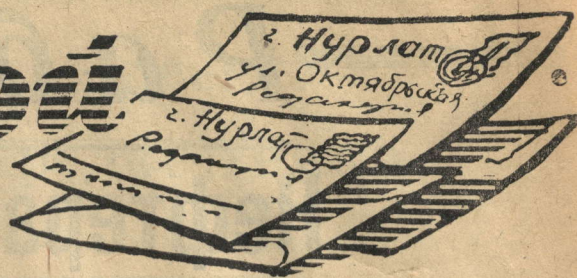 ой
г. Нурлат
ул. Октябрьская
Редакция
г. Нурлат
Редакция